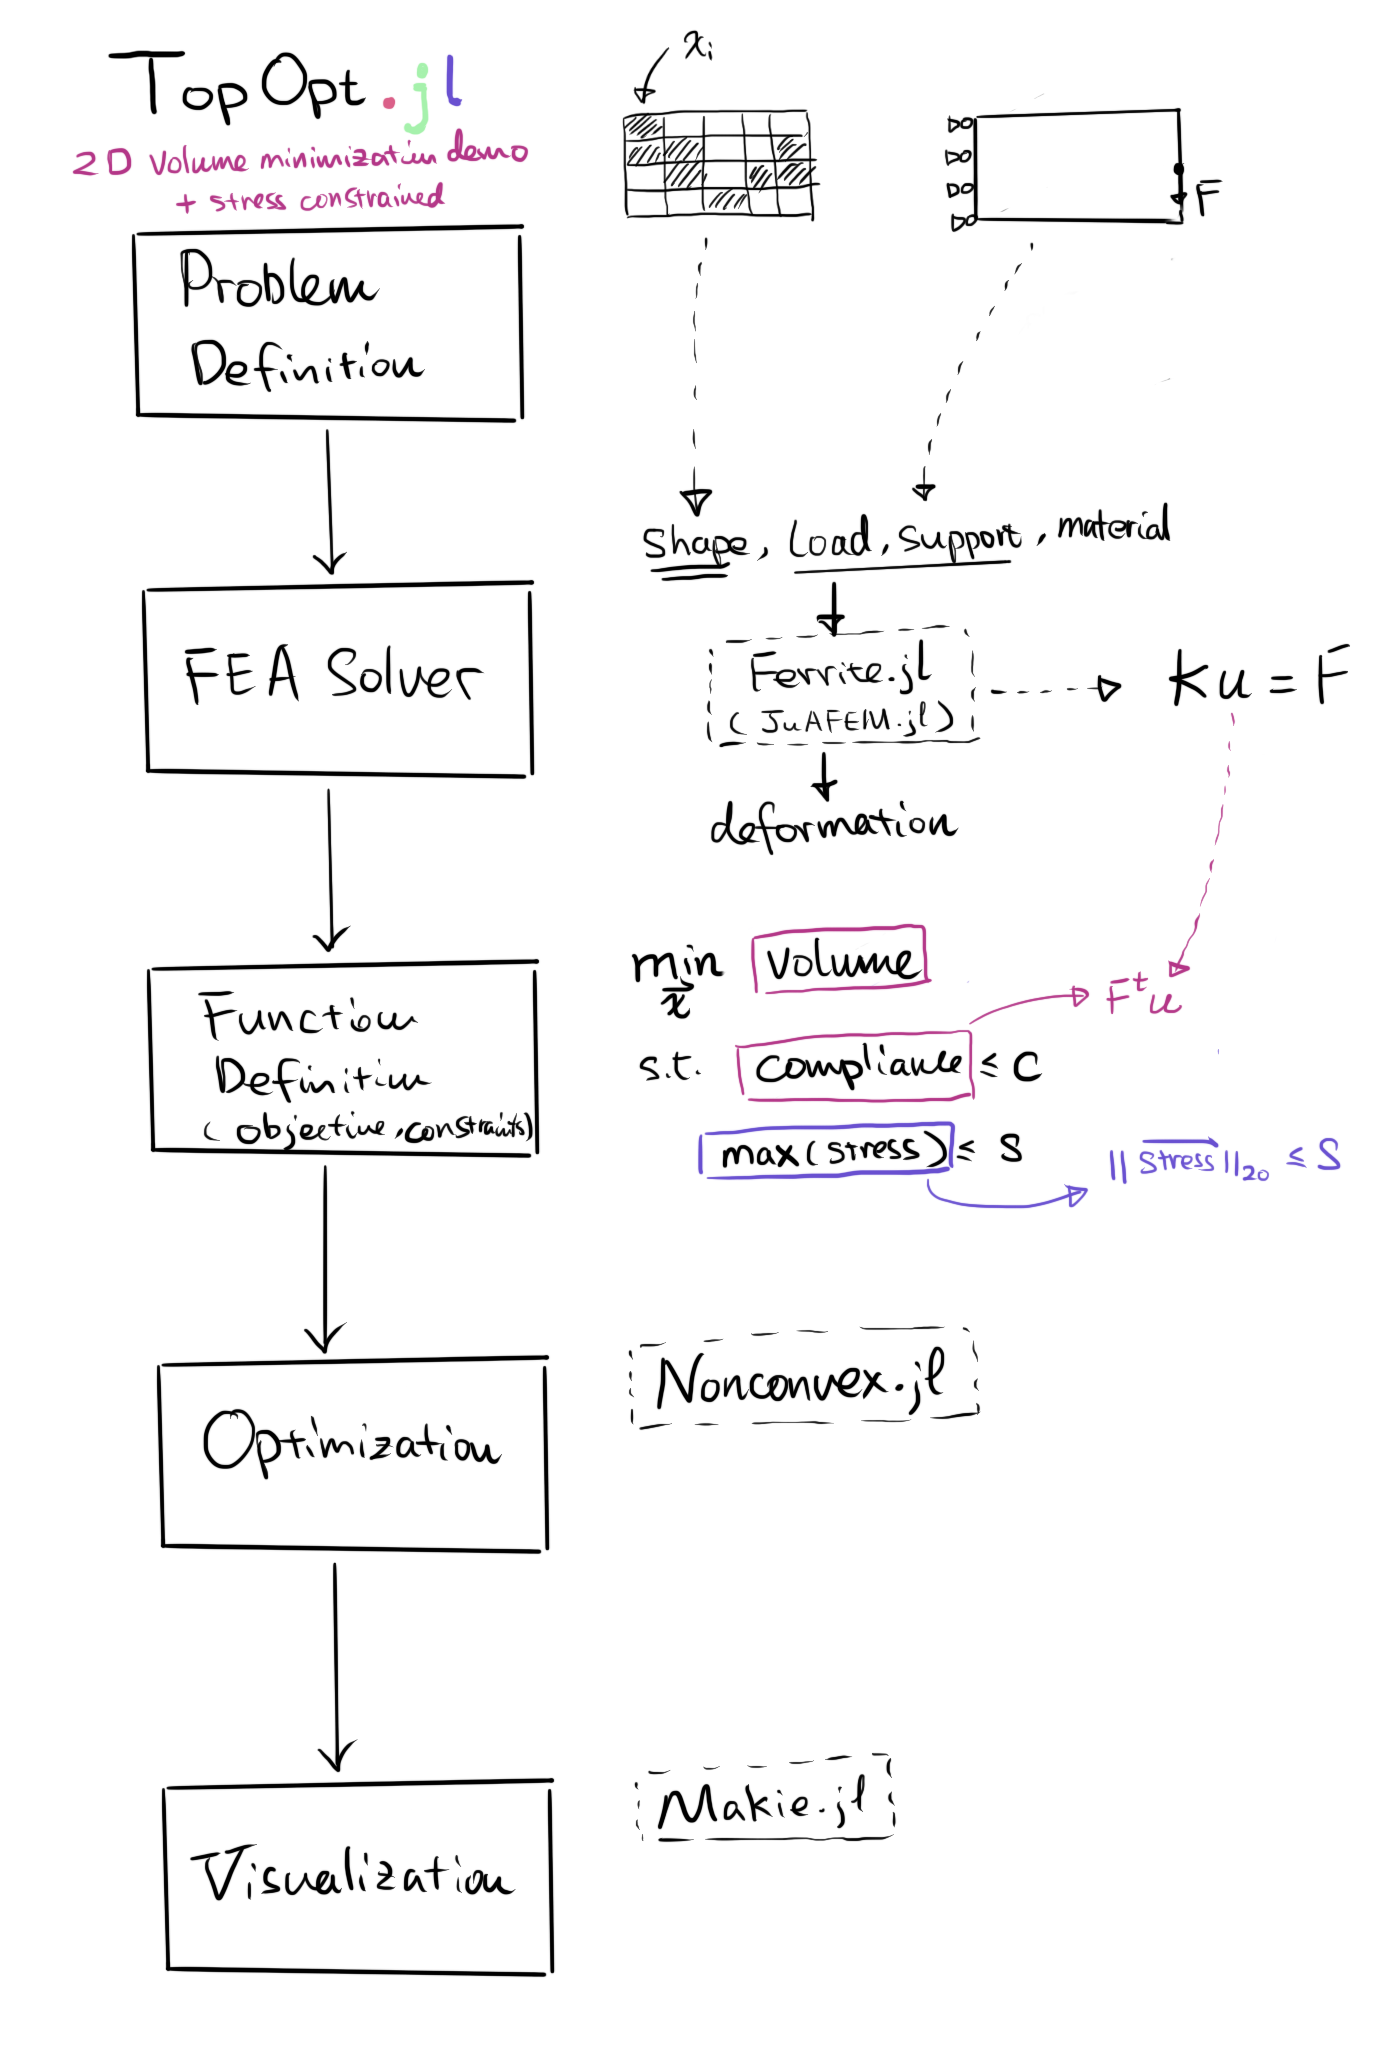 TopOpt.jl
2D Volume minimization demo
+ stress constrained
x_i
F
Problem
Definition
Shape, Load, Support, material
FEA Solver
Ferrite.jl
(JuAFEM.jl)
Ku = F
deformation
Function
Definition
(objective, constraints)
min Volume
x
F^t u
s.t. compliance ≤ C
max(stress) ≤ S
||stress||_20 ≤ S
Optimization
Nonconvex.jl
Visualization
Makie.jl